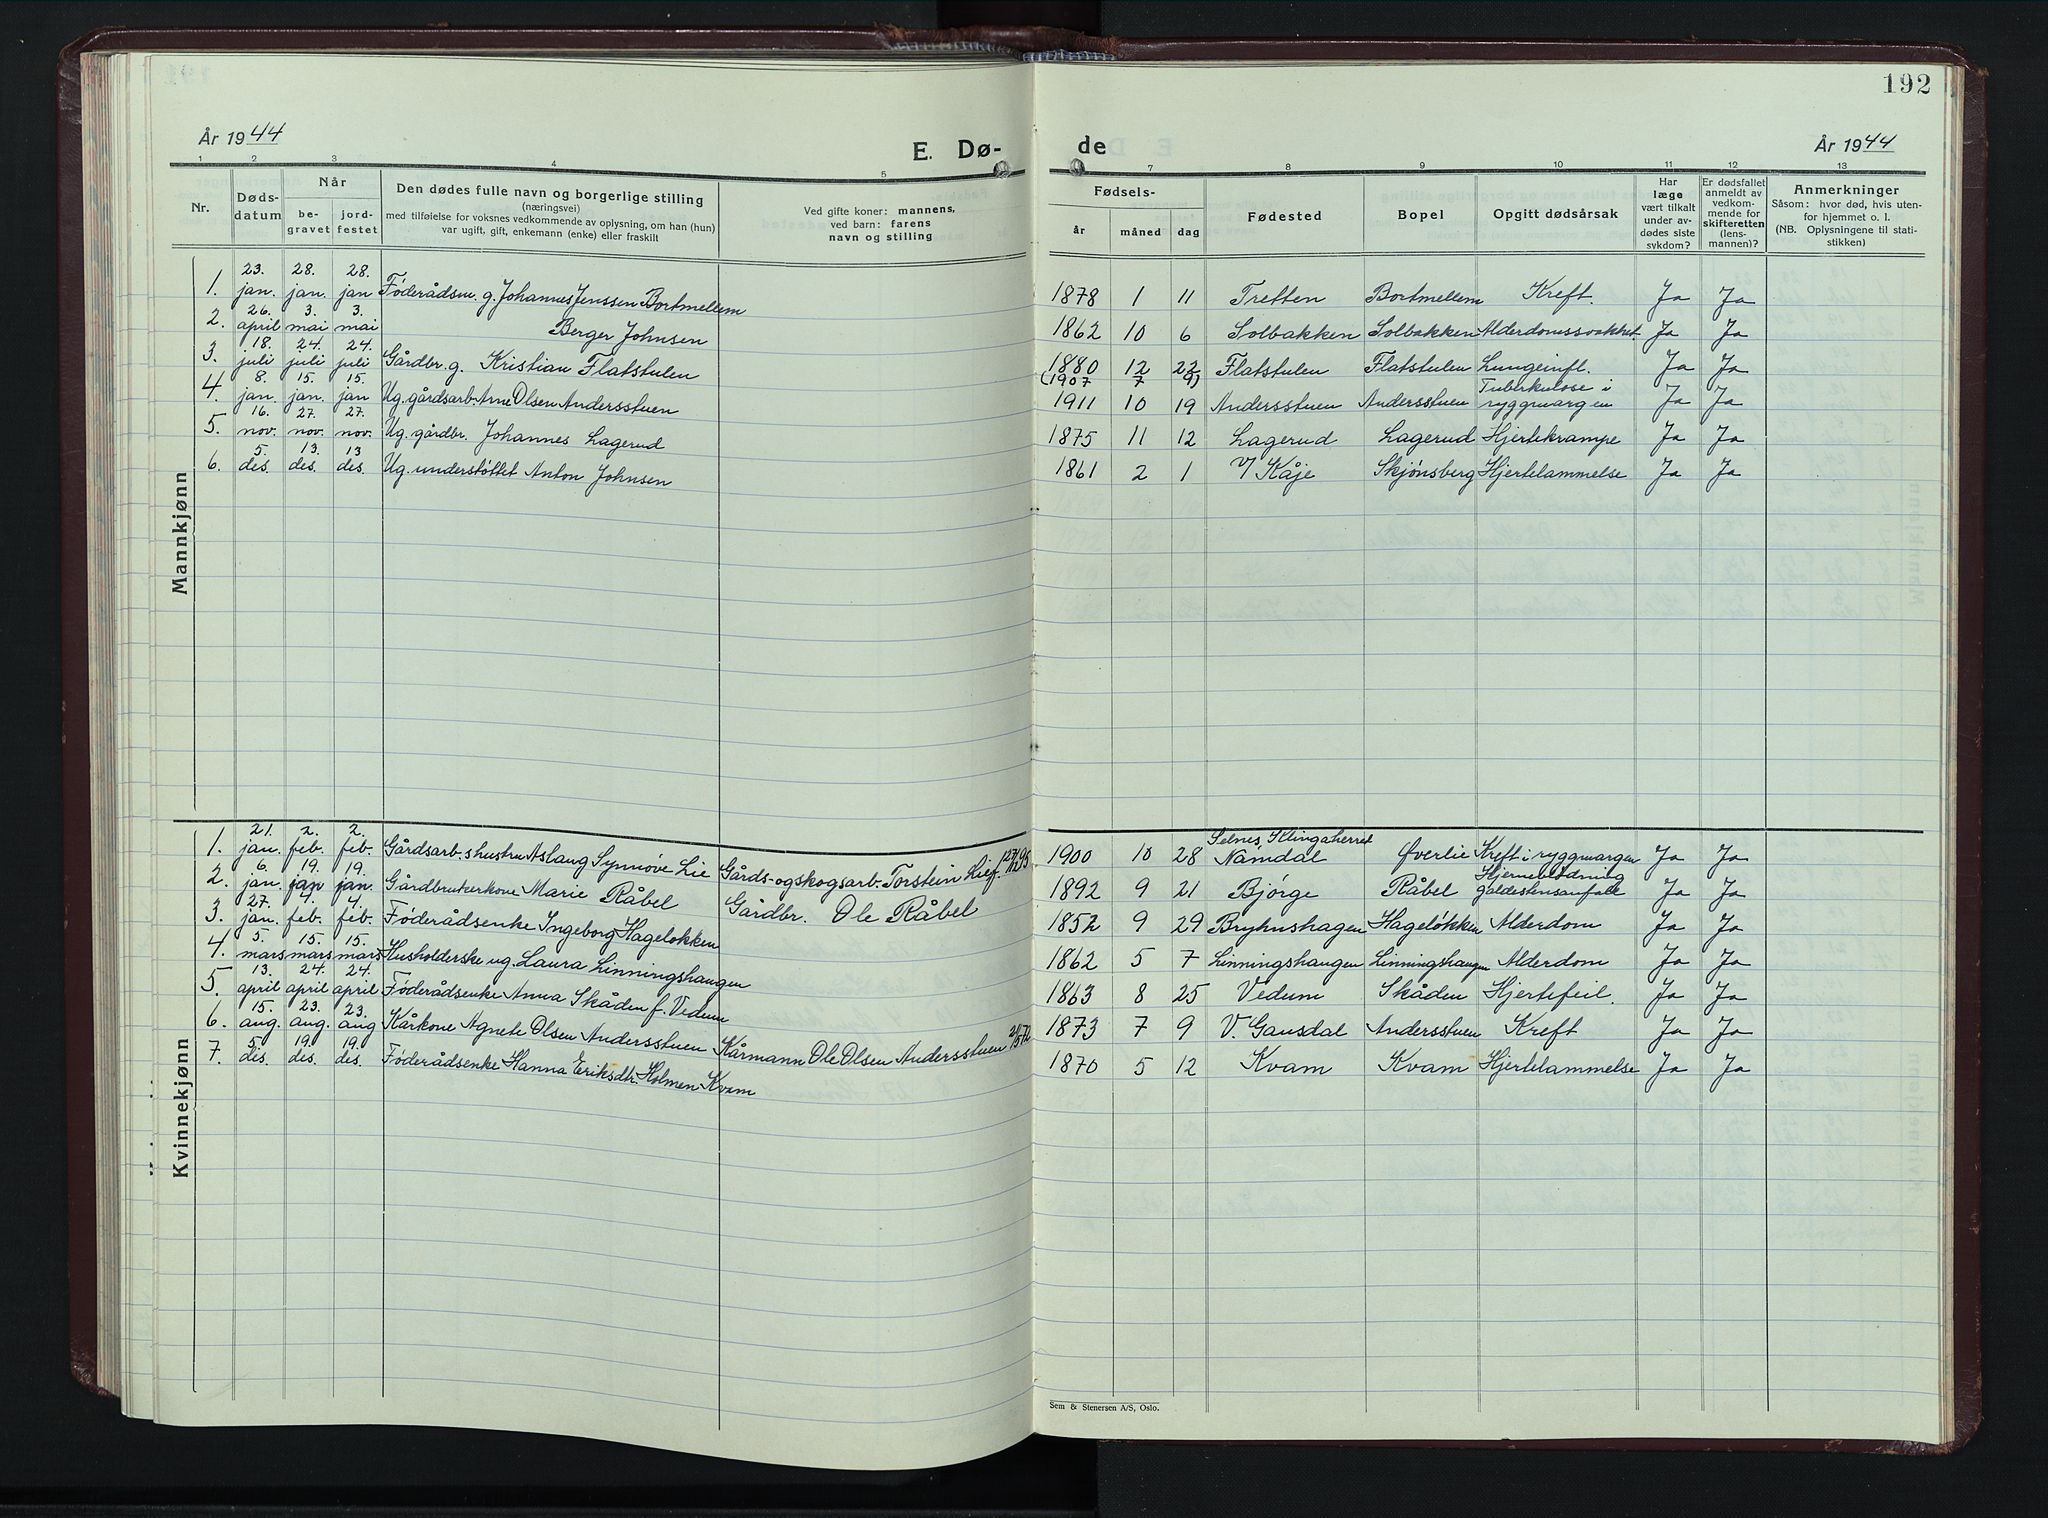 192
År 1944
E. Dø-
de
År 1944
1 2 3 4 5 7 8 9 10 11 12 13
Nr.
Døds-
datum
Når
be-
gravet
jord-
festet
Den dødes fulle navn og borgerlige stilling
(næringsvei)
med tilføielse for voksnes vedkommende av oplysning, om han (hun)
var ugift, gift, enkemann (enke) eller fraskilt
Ved gifte koner: mannens,
ved barn: farens
navn og stilling
Fødsels-
år måned dag
Fødested
Bopel
Opgitt dødsårsak
Har
læge
vært tilkalt
under av-
dødes siste
sykdom?
Er dødsfallet
anmeldt av
vedkom-
mende for
skifteretten
(lens-
mannen)?
Anmerkninger
Såsom: hvor død, hvis uten-
for hjemmet o. l.
(NB. Oplysningene til stati-
stikken)
Mannkjønn
1. 23. jan. 28. jan. 28. jan Føderådsm. g. Johannes Jenssen Bortmellem 1878 1 11 Tretten Bortmellem Kreft. Ja Ja
2. 26. april 3. mai 3. mai Berger Johnsen 1862 10 6 Solbakken Solbakken Alderdomssvakhet. Ja Ja
3. 18. juli 24. juli 24. juli Gårdbr. g. Kristian Flatstulen 1880 12 22 Flatstulen Flatstulen Lungeinfl. Ja Ja
(1907 7 9)
4. 8. jan. 15. jan. 15. jan Ug. gårdsarb. Arne Olsen Andersstuen 1911 10 19 Andersstuen Andersstuen Tuberkulose i ryggmargen Ja Ja
5. 16. nov. 27. nov. 27. nov. Ug. gårdbr. Johannes Lagerud 1875 11 12 Lagerud Lagerud Hjertekrampe Ja Ja
6. 5. des. 13. des. 13 des. Ug. understøttet Anton Johnsen 1861 2 1 V Kåje Skjønsberg Hjertelammelse Ja Ja
Kvinnekjønn
1. 21. jan. 2. feb. 2. feb. Gårdsarb.shustru Aslaug Synnøve Lie Gårds-ogskogsarb. Torstein Lie f. 27/12 95 1900 10 28 Selnes, Klingaherret Namdal Øverlie Kreft i ryggmargen Ja Ja
2. 6. jan. 19. jan 19. jan. Gårdbrukerkone Marie Råbel Gårdbr. Ole Råbel 1892 9 21 Bjørge Råbel Hjerneblødning galdestensanfall Ja Ja
3. 27. jan. 4. feb. 4. feb. Føderådsenke Ingeborg Hageløkken 1852 9 29 Bryhnshagen Hageløkken Alderdom Ja Ja
4. 5. mars 15. mars 15. mars Husholderske ug. Laura Linningshaugen 1862 5 7 Linningshaugen Linningshaugen Alderdom Ja Ja
5. 13. april 24. april 24. april Føderådsenke Anna Skåden f. Vedum 1863 8 25 Vedum Skåden Hjertefeil. Ja Ja
6. 15. aug. 23. aug. 23. aug Kårkone Agnete Olsen Andersstuen Kårmann Ole Olsen Andersstuen 1873 7 9 V. Gausdal Andersstuen Kreft Ja Ja
7. 5. des. 19. des. 19. des. Føderådsenke Hanna Eriksdtr. Holmen Kvam 1870 5 12 Kvam Kvam Hjertelammelse Ja Ja
Sem & Stenersen A/S, Oslo.